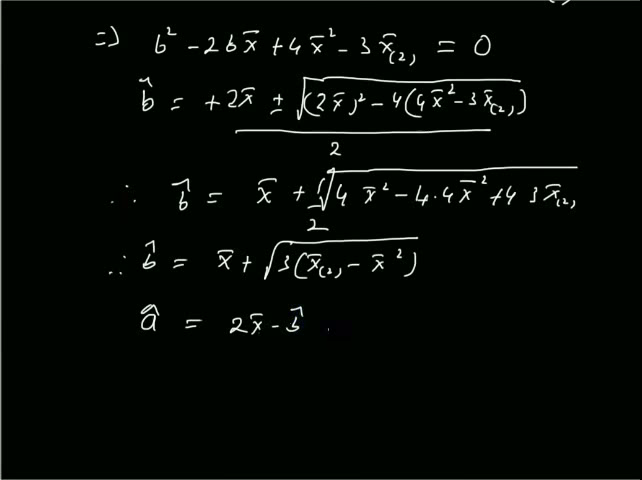 ⇒ b² - 2bx̄ + 4x̄² - 3x̄₍₂₎ = 0
b̂ = +2x̄ ± √((2x̄)² - 4(4x̄² - 3x̄₍₂₎)) / 2
∴ b̂ = x̄ + ½√(4x̄² - 4·4x̄² + 4 3x̄₍₂₎
∴ b̂ = x̄ + √(3(x̄₍₂₎ - x̄²))
â = 2x̄ - b̂